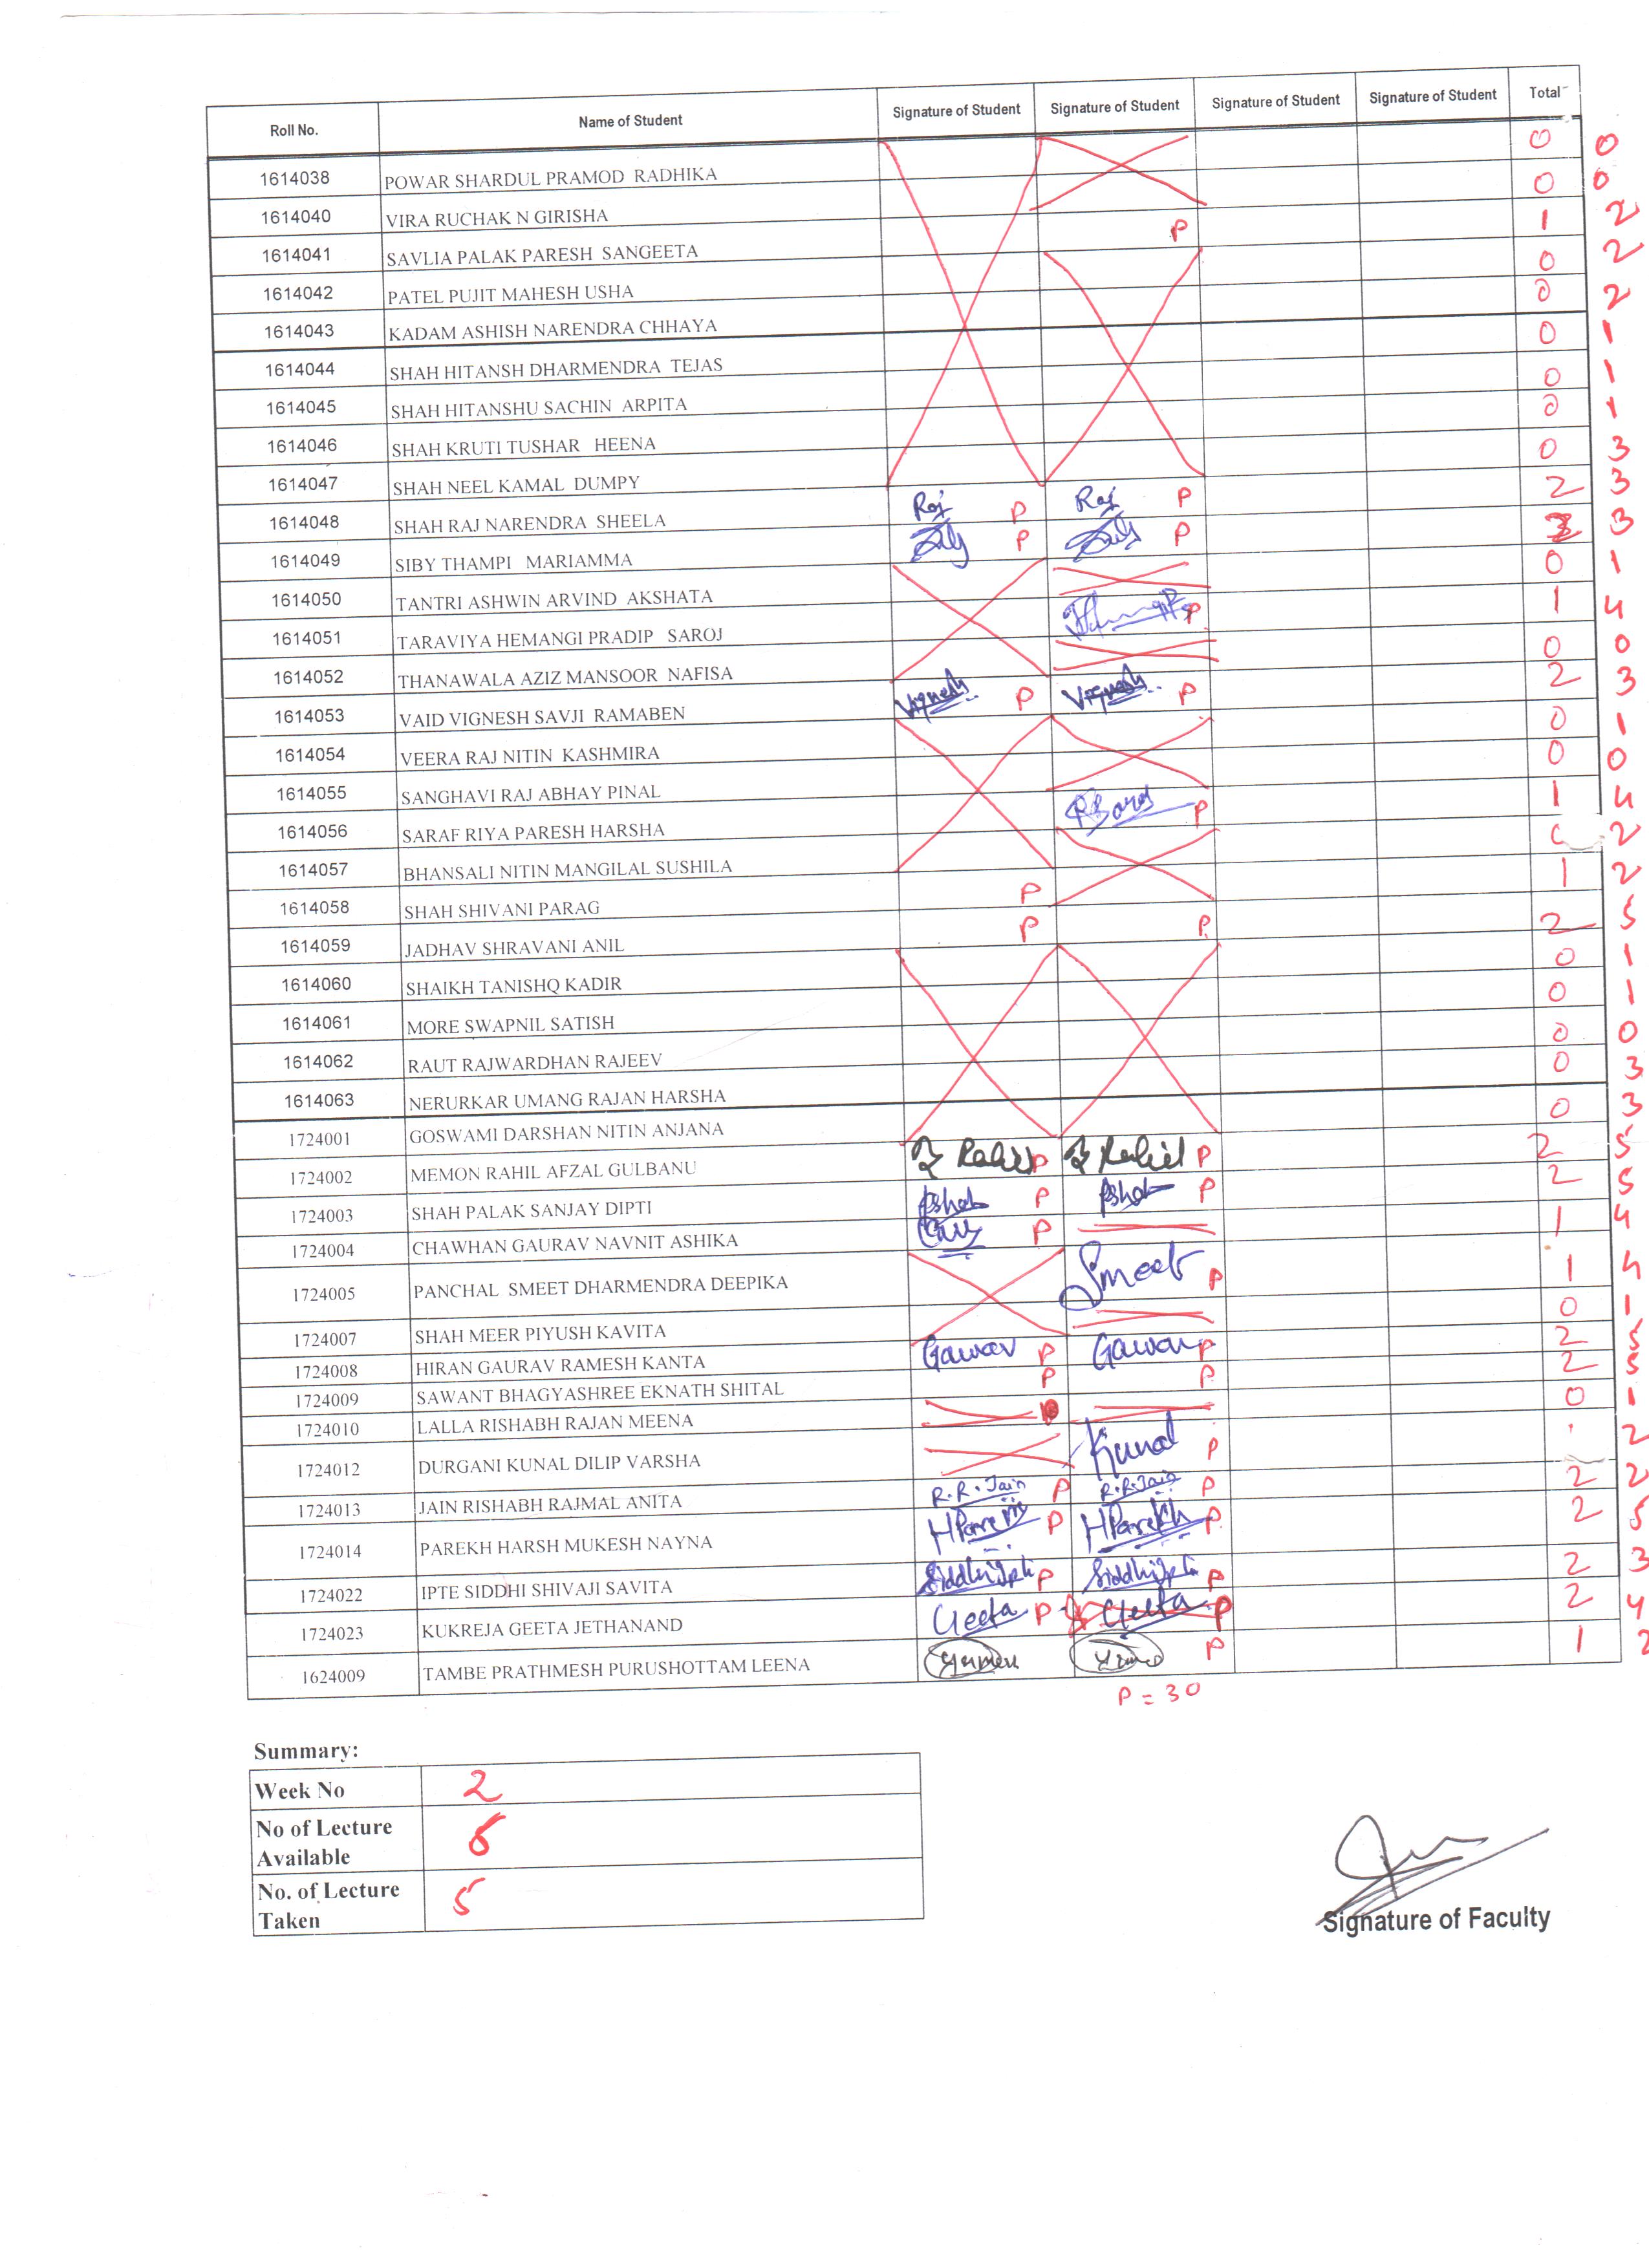 Roll No. Name of Student Signature of Student Signature of Student Signature of Student Signature of Student Total
1614038 POWAR SHARDUL PRAMOD RADHIKA 0 0
1614040 VIRA RUCHAK N GIRISHA 0 0
1614041 SAVLIA PALAK PARESH SANGEETA P 1 2
1614042 PATEL PUJIT MAHESH USHA 0 2
1614043 KADAM ASHISH NARENDRA CHHAYA 0 2
1614044 SHAH HITANSH DHARMENDRA TEJAS 0 1
1614045 SHAH HITANSHU SACHIN ARPITA 0 1
1614046 SHAH KRUTI TUSHAR HEENA 0 1
1614047 SHAH NEEL KAMAL DUMPY 0 3
1614048 SHAH RAJ NARENDRA SHEELA Raj P Raj P 2 3
1614049 SIBY THAMPI MARIAMMA P P 3
1614050 TANTRI ASHWIN ARVIND AKSHATA 0 1
1614051 TARAVIYA HEMANGI PRADIP SAROJ P 1 4
1614052 THANAWALA AZIZ MANSOOR NAFISA 0 0
1614053 VAID VIGNESH SAVJI RAMABEN Vignesh P Vignesh P 2 3
1614054 VEERA RAJ NITIN KASHMIRA 0 1
1614055 SANGHAVI RAJ ABHAY PINAL 0 0
1614056 SARAF RIYA PARESH HARSHA P 1 4
1614057 BHANSALI NITIN MANGILAL SUSHILA 2
1614058 SHAH SHIVANI PARAG P 1 2
1614059 JADHAV SHRAVANI ANIL P P 2 5
1614060 SHAIKH TANISHQ KADIR 0 1
1614061 MORE SWAPNIL SATISH 0 1
1614062 RAUT RAJWARDHAN RAJEEV 0 0
1614063 NERURKAR UMANG RAJAN HARSHA 0 3
1724001 GOSWAMI DARSHAN NITIN ANJANA 0 3
1724002 MEMON RAHIL AFZAL GULBANU Rahil P Rahil P 2 5
1724003 SHAH PALAK SANJAY DIPTI P P 2 5
1724004 CHAWHAN GAURAV NAVNIT ASHIKA P 1 4
1724005 PANCHAL SMEET DHARMENDRA DEEPIKA Smeet P 1 4
1724007 SHAH MEER PIYUSH KAVITA 0 1
1724008 HIRAN GAURAV RAMESH KANTA Gaurav P Gaurav P 2 5
1724009 SAWANT BHAGYASHREE EKNATH SHITAL P P 2 5
1724010 LALLA RISHABH RAJAN MEENA 0 1
1724012 DURGANI KUNAL DILIP VARSHA Kunal P 2
1724013 JAIN RISHABH RAJMAL ANITA R.R.Jain P R.R.Jain P 2 2
1724014 PAREKH HARSH MUKESH NAYNA HParekh P HParekh P 2 5
1724022 IPTE SIDDHI SHIVAJI SAVITA SiddhiIpte P SiddhiIpte P 2 3
1724023 KUKREJA GEETA JETHANAND Geeta P Geeta P 2 4
1624009 TAMBE PRATHMESH PURUSHOTTAM LEENA P 1 2
P = 30
Summary:
Week No 2
No of Lecture Available
No. of Lecture Taken 5
Signature of Faculty